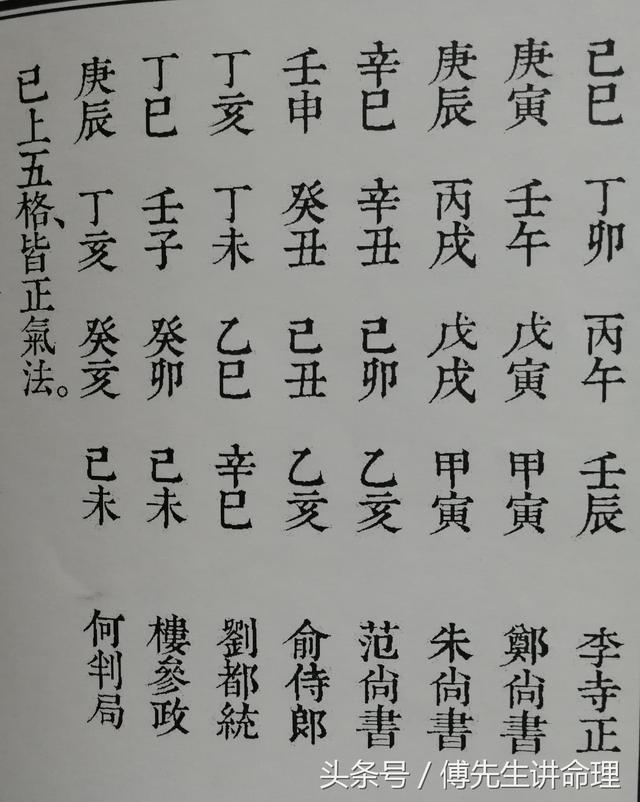 己巳 丁卯 丙午 壬辰 李寺正
庚寅 壬午 戊寅 甲寅 鄭尙書
庚辰 丙戌 戊戌 甲寅 朱尙書
辛巳 辛丑 己卯 乙亥 范尙書
壬申 癸丑 己丑 乙亥 俞侍郎
丁亥 丁未 乙巳 辛巳 劉都統
丁巳 壬子 癸卯 己未 樓參政
庚辰 丁亥 癸亥 己未 何判局
已上五格、皆正氣法。
头条号/傅先生讲命理